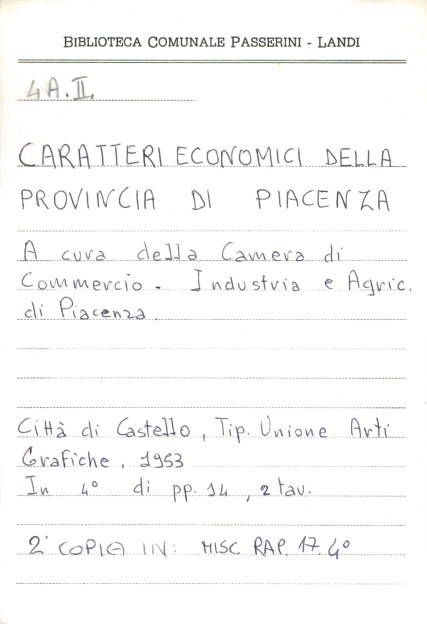 BIBLIOTECA COMUNALE PASSERINI - LANDI
4A.II.
CARATTERI ECONOMICI DELLA
PROVINCIA DI PIACENZA
A cura della Camera di
Commercio. Industria e Agric.
di Piacenza.
Città di Castello, Tip. Unione Arti
Grafiche, 1953
In 4° di pp. 14, 2 tav.
2° COPIA IN: MISC RAP. 17. 4°